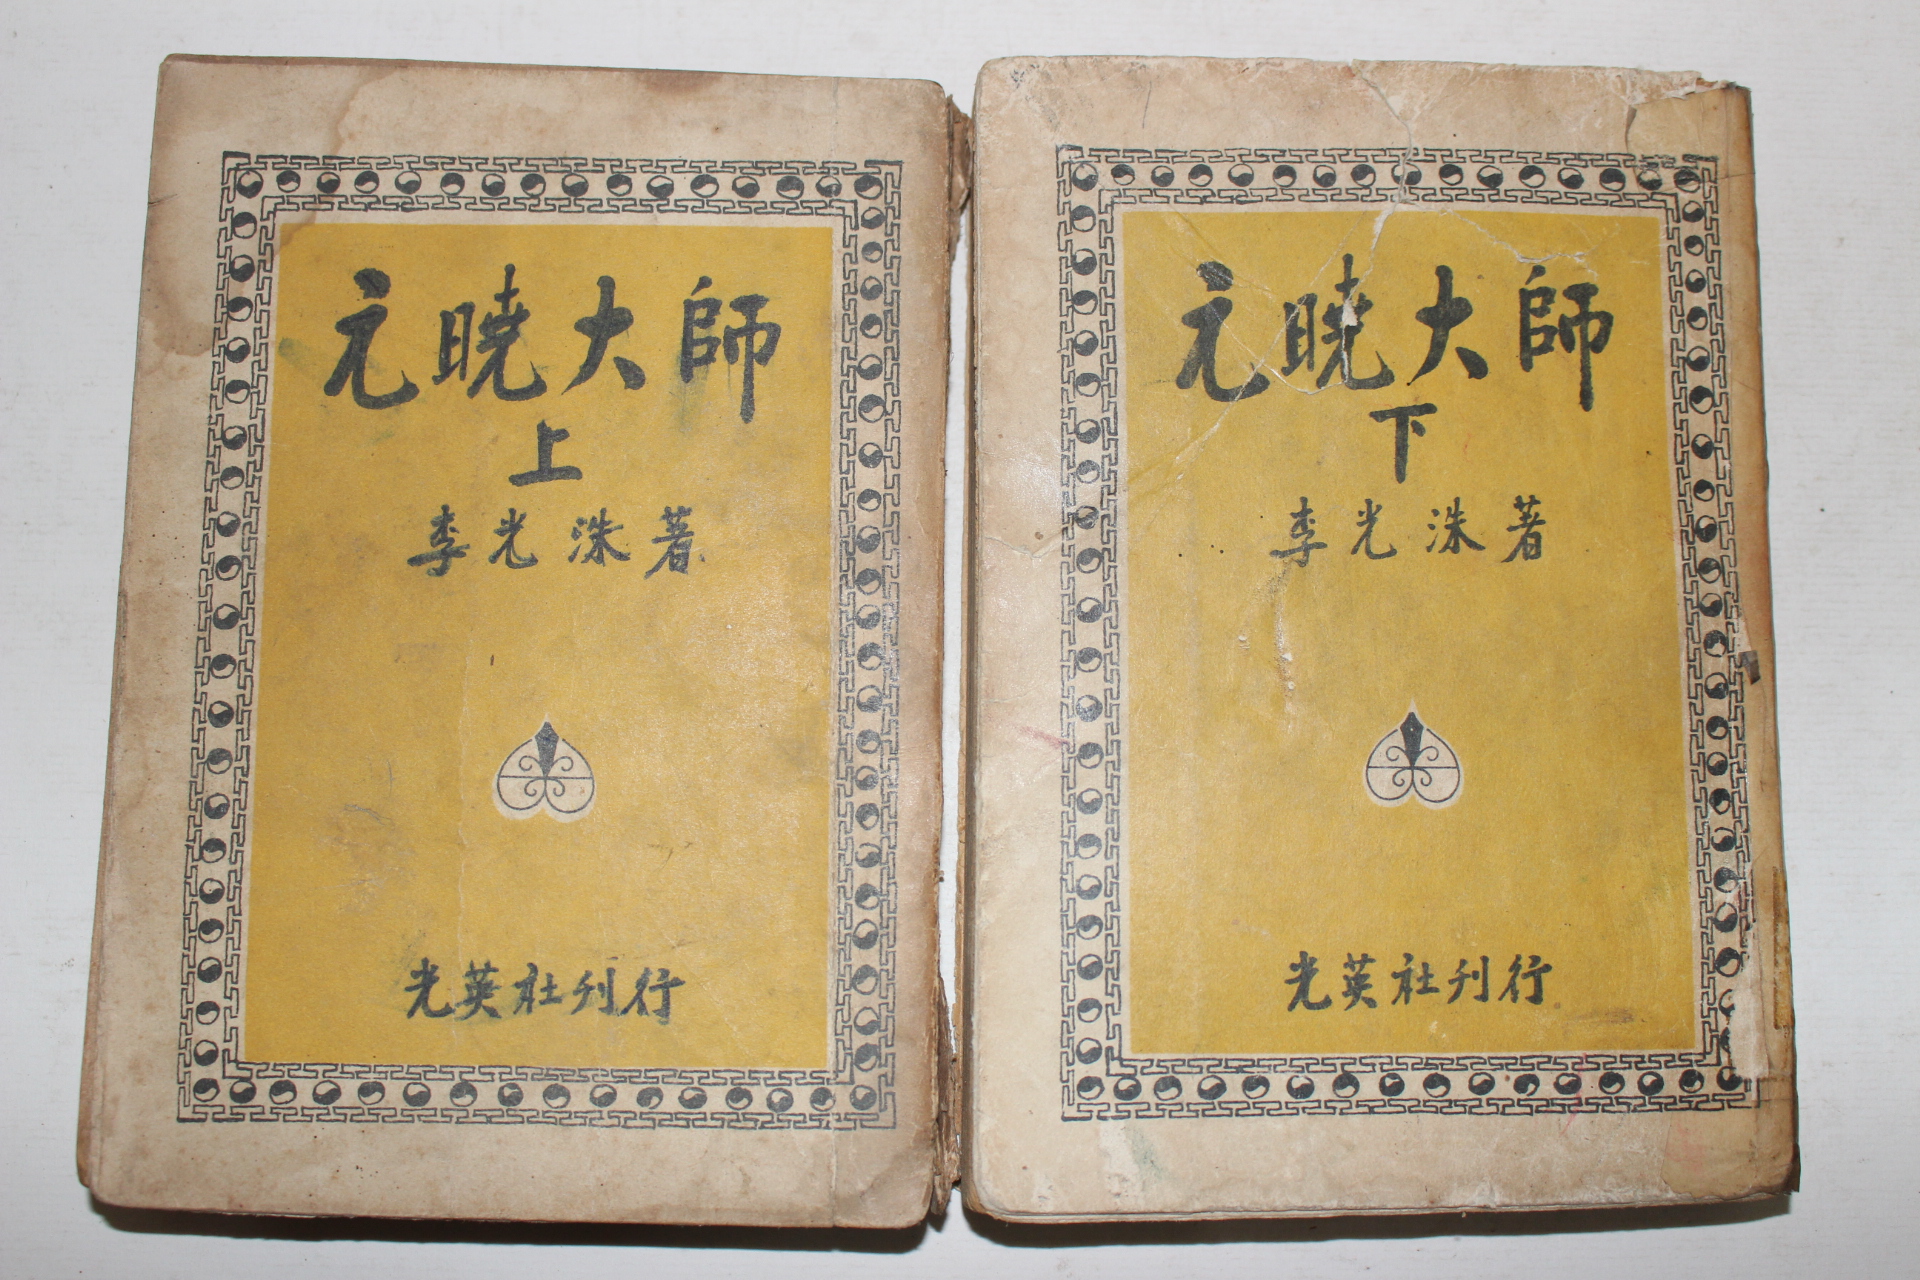 元暁大師
上
李光洙著
光英社刊行
元暁大師
下
李光洙著
光英社刊行